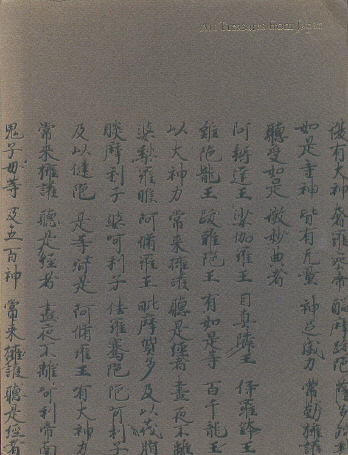 Art Treasures from Japan
如是等神 皆有无量 神足威力 常勤擁護
聽受如是 微妙典者
阿耨達王 娑伽羅王 目真隣王 伊羅鉢王
難陁龍王 跋難陁王 有如是等 百千龍王
以大神力 常來擁護 聽是經者 晝夜不離
婆稚羅睺阿脩羅王 毗摩質多及以
睒摩利子 婆呵利子 佉羅騫陁
及以揵陁 是等皆是 阿脩羅王 有大神力
常來擁護 聽是經者 晝夜不離 呵利帝南
鬼子母等 及五百神 常來擁護 聽是經者